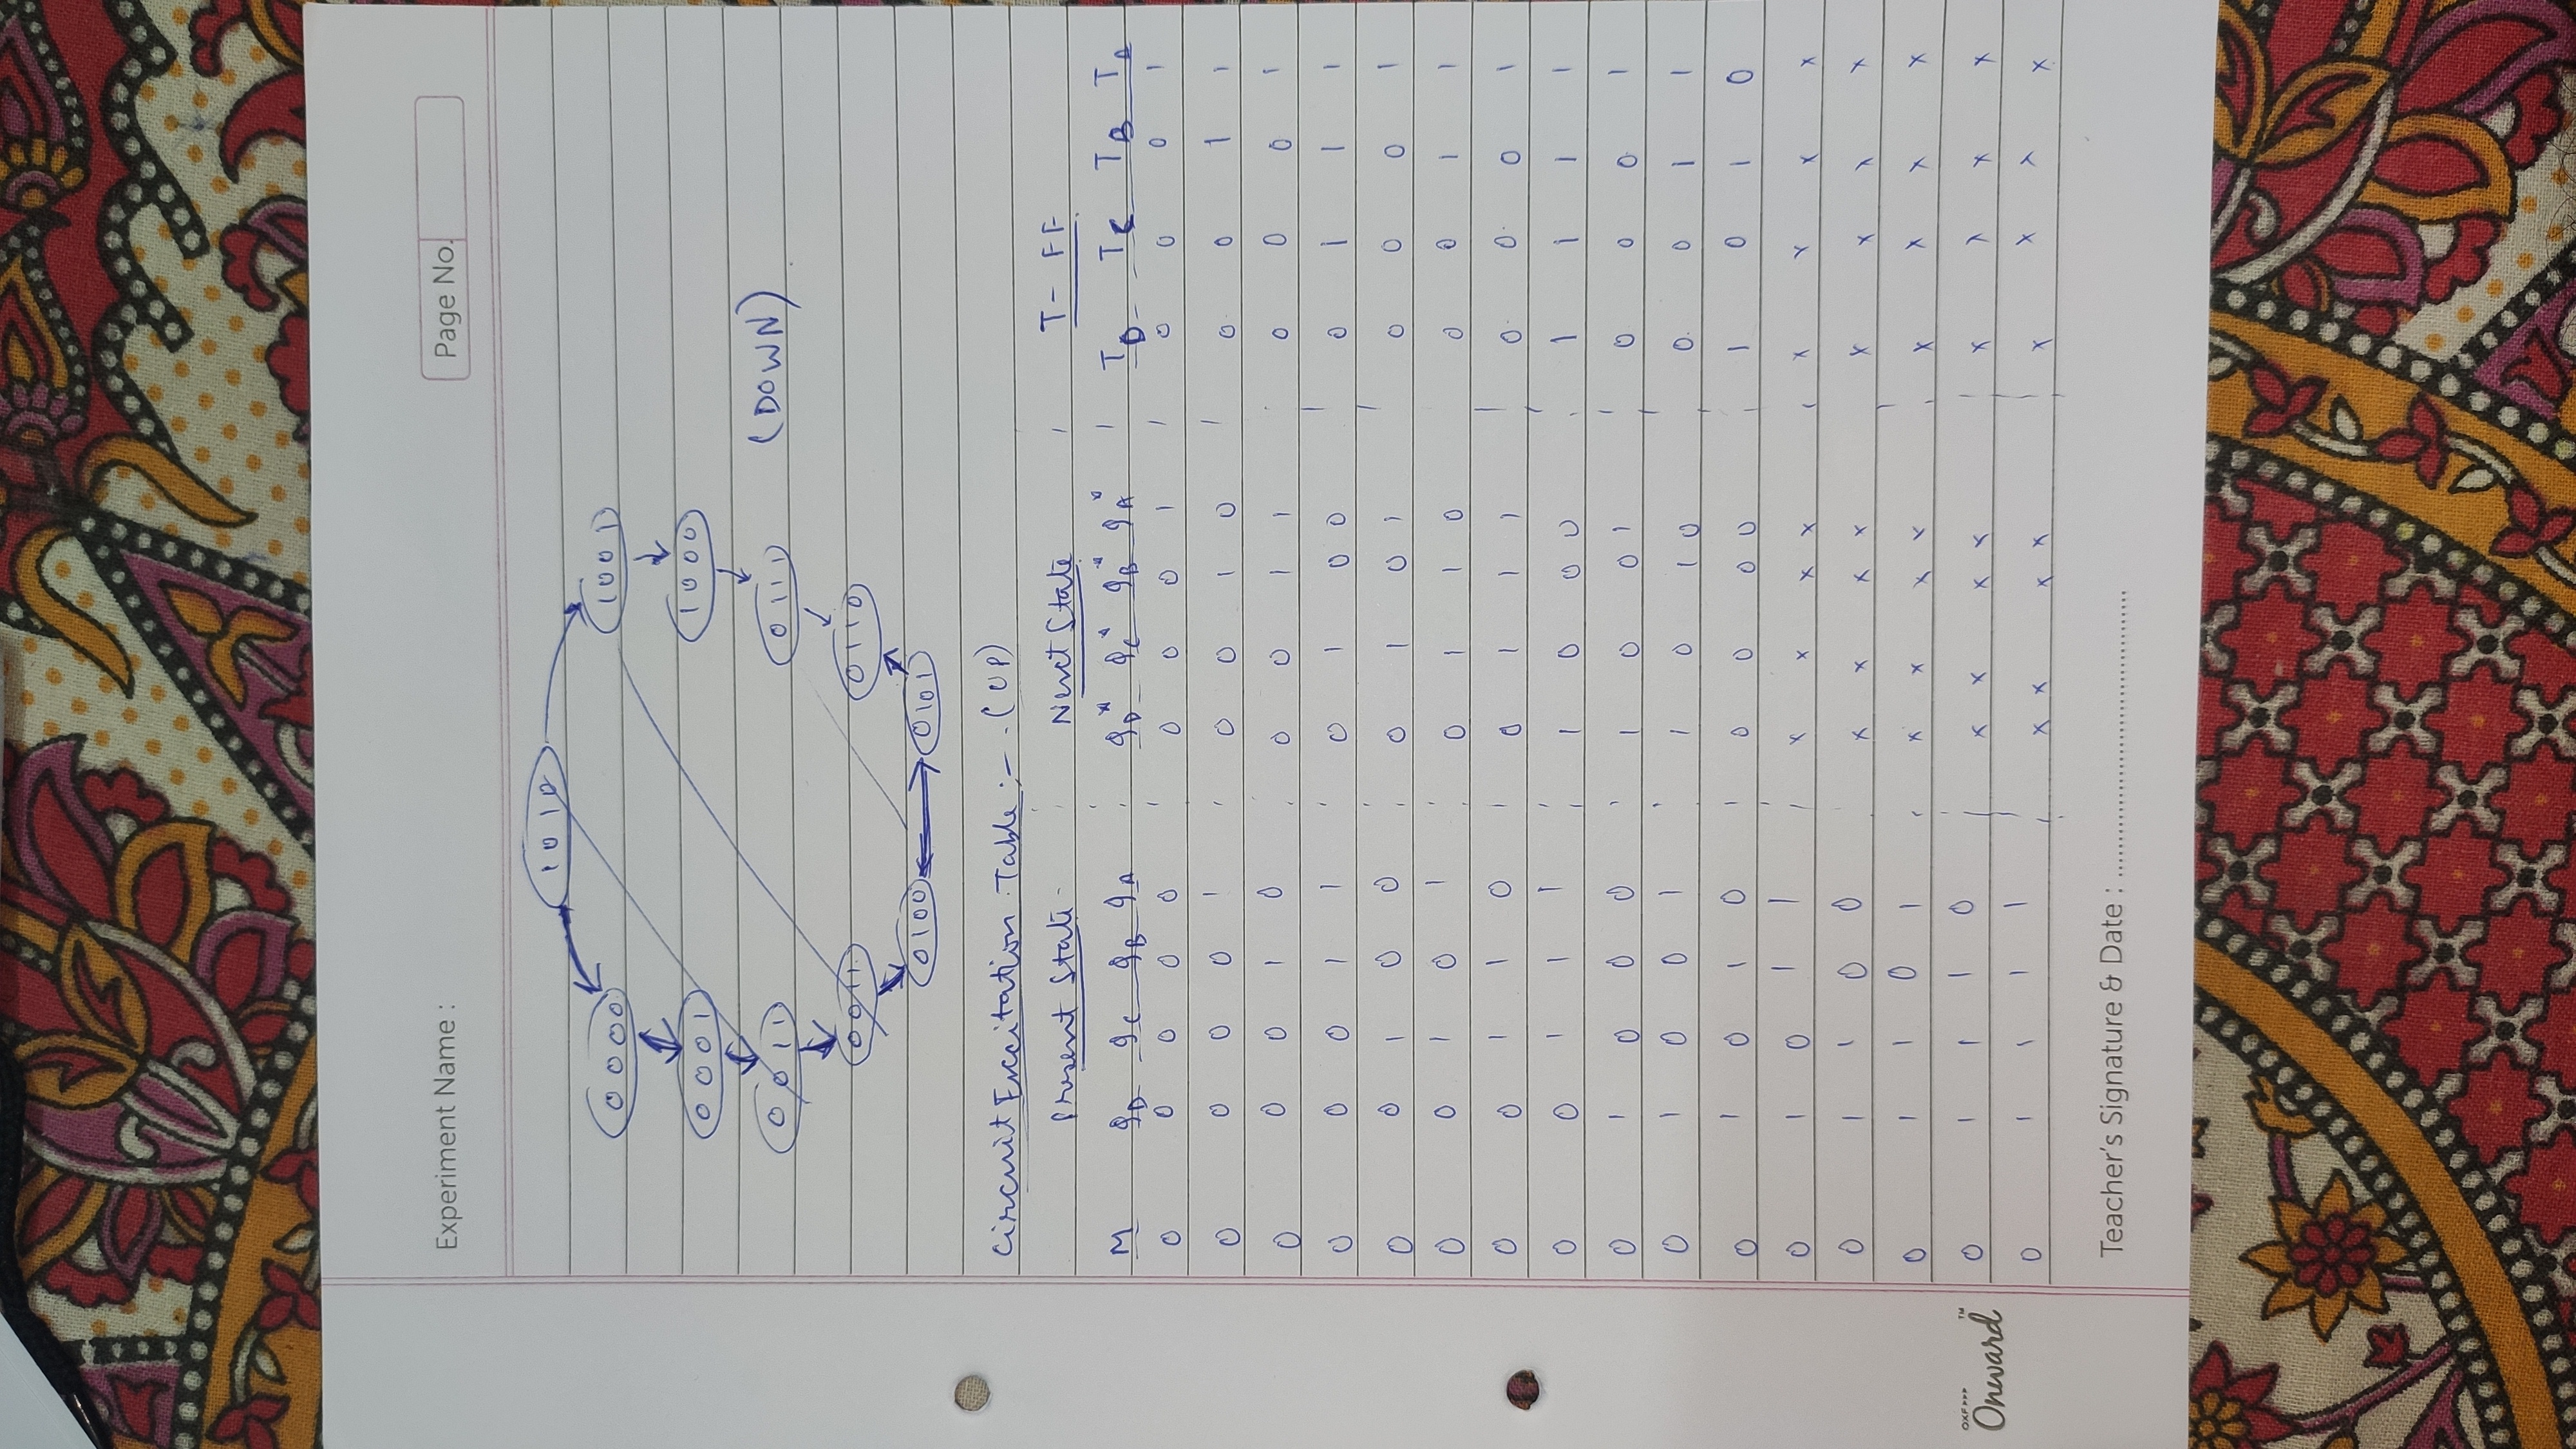 Experiment Name :
Page No.
1 0 1 0
0 0 0 0
1 0 0 1
0 0 0 1
1 0 0 0
0 0 1 1
0 1 1 1
(DOWN)
0 0 1 1
0 1 1 0
0 1 0 0
0 1 0 1
Circuit Excitation Table :- (UP)
Present State Next State T- FF
M qD qC qB qA qD* qC* qB* qA* TD TC TB TA
0 0 0 0 0 0 0 0 1 0 0 0 1
0 0 0 0 1 0 0 1 0 0 0 1 1
0 0 0 1 0 0 0 1 1 0 0 0 1
0 0 0 1 1 0 1 0 0 0 1 1 1
0 0 1 0 0 0 1 0 1 0 0 0 1
0 0 1 0 1 0 1 1 0 0 0 1 1
0 0 1 1 0 0 1 1 1 0 0 0 1
0 0 1 1 1 1 0 0 0 1 1 1 1
0 1 0 0 0 1 0 0 1 0 0 0 1
0 1 0 0 1 1 0 1 0 0 0 1 1
0 1 0 1 0 0 0 0 0 1 0 1 0
0 1 0 1 1 x x x x x x x x
0 1 1 0 0 x x x x x x x x
0 1 1 0 1 x x x x x x x x
0 1 1 1 0 x x x x x x x x
0 1 1 1 1 x x x x x x x x
OXF>>>
Onward™
Teacher's Signature & Date : ........................................